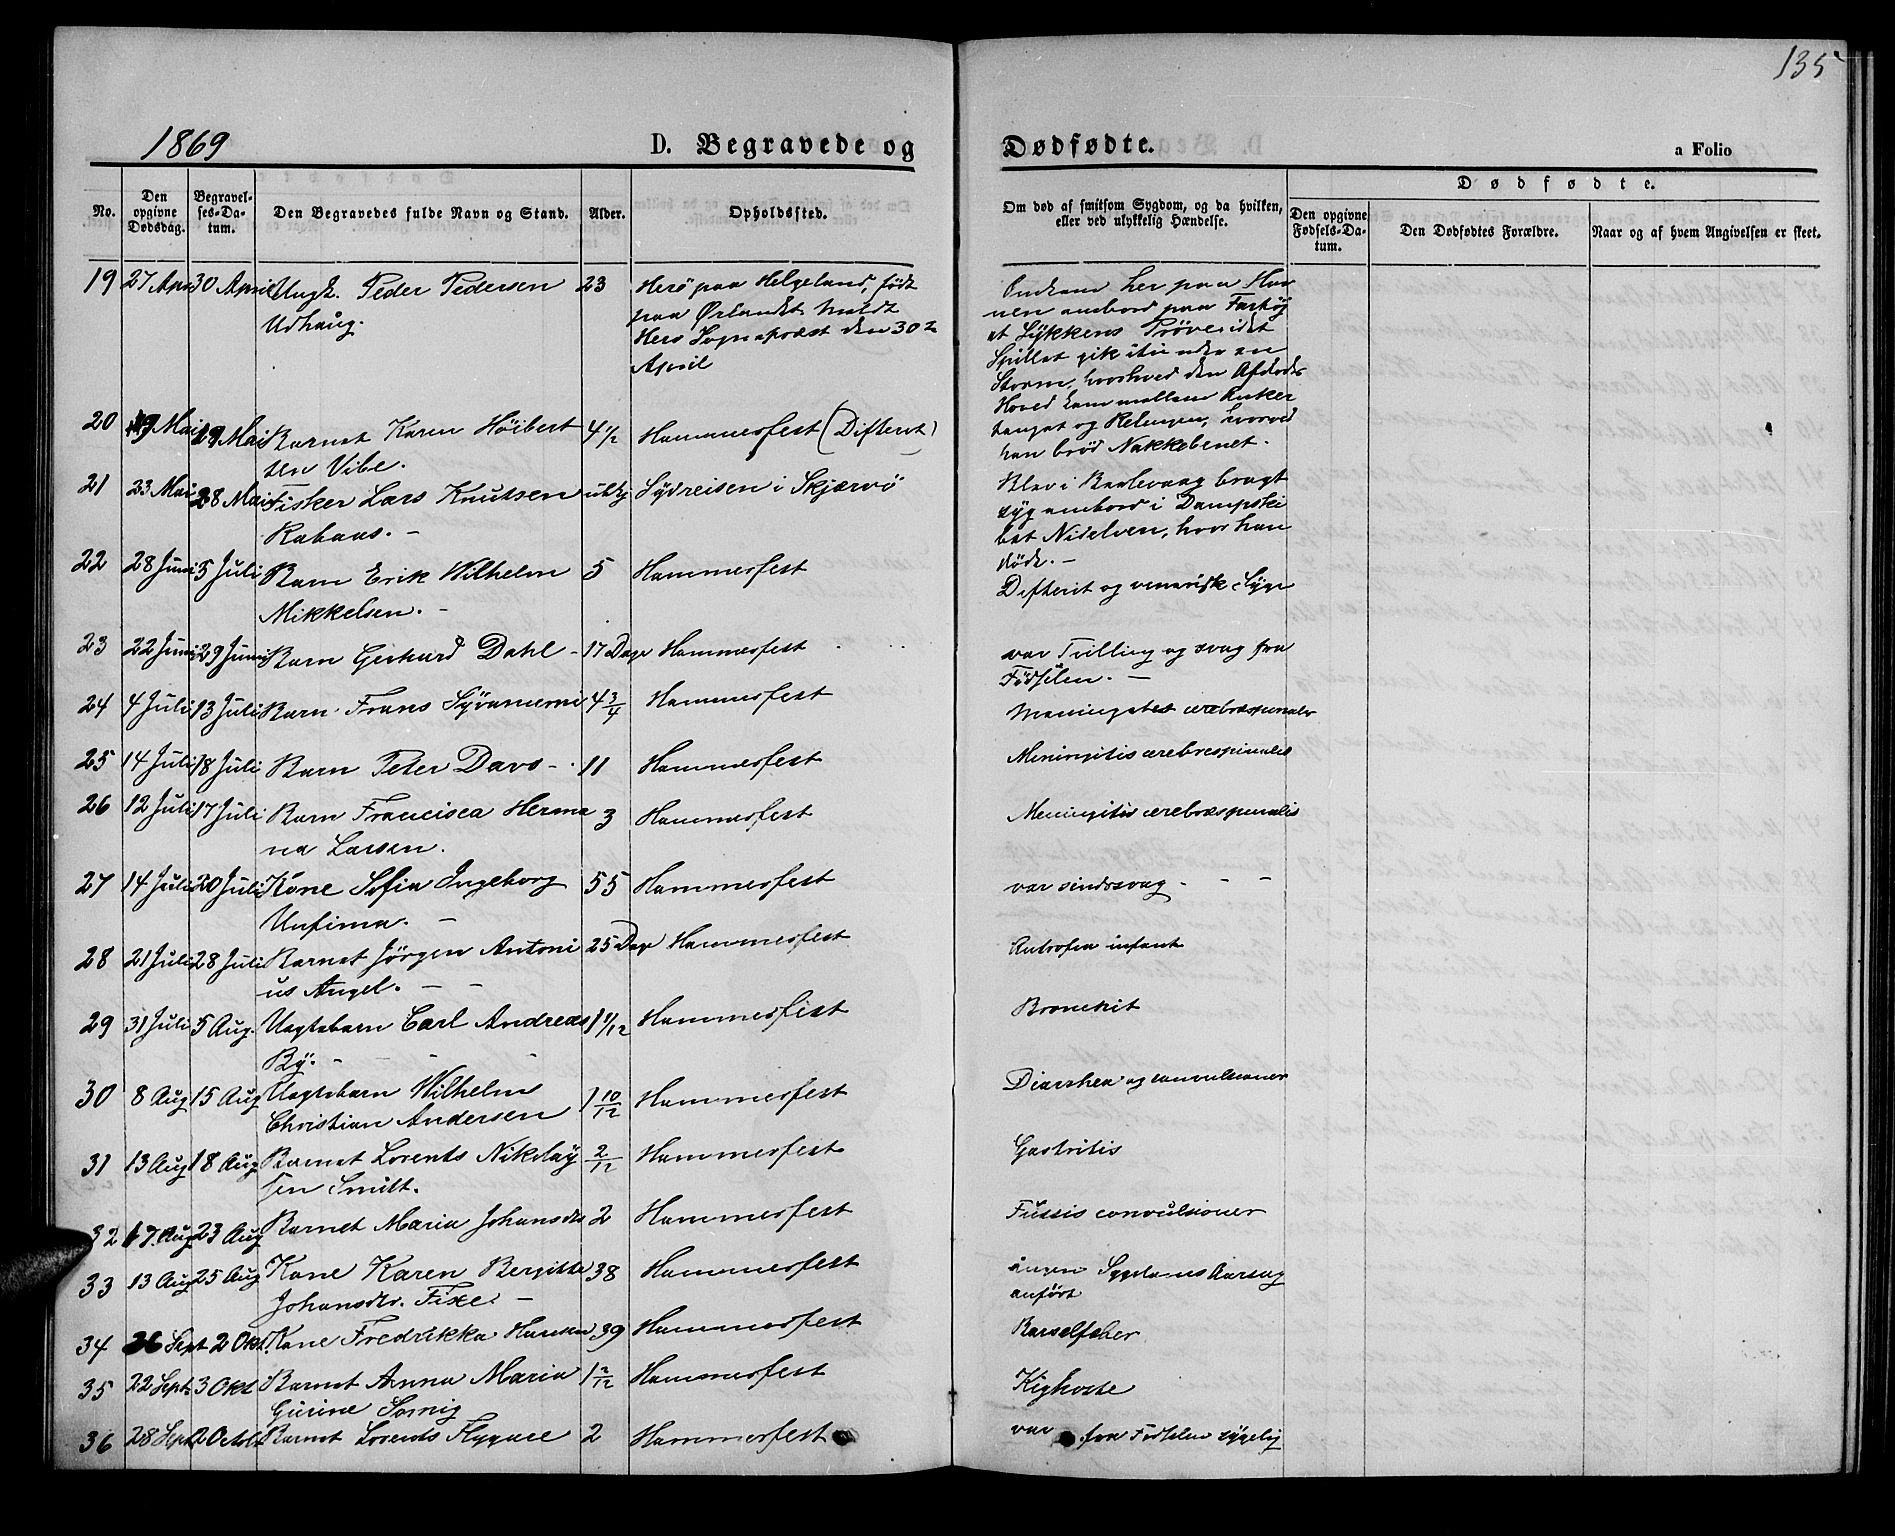 135
1869
D. Begravede og
Dødfødte.
a Folio
No.
Den opgivne Dødsdag.
Begravelses-Datum.
Den Begravedes fulde Navn og Stand.
Alder.
Opholdssted.
Om død af smitsom Sygdom, og da hvilken,
eller ved ulykkelig Hændelse.
Dødfødte.
Den opgivne Fødsels-Datum.
Den Dødfødtes Forældre.
Naar og af hvem Angivelsen er skeet.
19 27 Apr 30 April Ungk. Peder Pedersen 23 Herö paa Helgeland, födt
Udhaug. paa Ørlandet, meldt
Herö Sognepræst den 30te
April
Omkom her paa Hav
nen ombord paa Fartöj
et Lÿkkens Pröve, idet
Spillet gik itu under en
Storm, hvorved den Afdödes
Hoved kom mellem Anker
tanget og Relingen, hvorved
han bröd Nakkebenet.
20 19 Mai 29 Mai Barnet Karen Höibert 4 1/2 Hammerfest (Difterit)
sen Vibe.
21 23 Mai 28 Mai Fisker Lars Knutsen ubkj Sÿdreisen i Skjærvö
Rabaas. -
Blev i Bÿ bragt
syg ombord i Dampski
bet Nidelven, hvor han
döde. -
22 28 Juni 5 Juli Barn Erik Wilhelm 5 Hammerfest
Mikkelsen. -
Difterit og venerisk Syge
23 22 Juni 29 Juni Barn Gerhard Dahl - 17 Dage Hammerfest
var Tvilling og svag fra
Födselen. -
24 4 Juli 13 Juli Barn Frans 4 3/4 Hammerfest
Meningites cerebrospinales
25 14 Juli 18 Juli Barn Peter Davo - 11 Hammerfest
Meningitis cerebrospinales
26 12 Juli 17 Juli Barn Francisca Herma 3 Hammerfest
na Larsen.
Meningitis cerebrospinalis
27 14 Juli 20 Juli Kone Sofia Ingeborg 55 Hammerfest
Unfima. -
var sindssvag - - -
28 21 Juli 28 Juli Barnet Jörgen Antoni 25 Dage Hammerfest
us Angel. - -
Antrofea infant
29 31 Juli 5 Aug. Uægtebarn Carl Andreas 1 11/12 Hammerfest
Bÿ. - -
Bronckit
30 8 Aug 15 Aug Uægtebarn Wilhelm 1 10/12 Hammerfest
Christian Andersen
Diarrhea og convulsioner
31 13 Aug 18 Aug Barnet Lorents Nikolaÿ 2/12 Hammerfest
sen Smitt.
Gastritis
32 17. Aug 23 Aug Barnet Maria Johansdtr 2 Hammerfest
Tussis convulsioner
33 13 Aug 25 Aug Kone Karen Bergitte 38 Hammerfest
Johansdtr. Fixe. -
ingen Sygdoms Aarsag
anfört
34 26 Sept 2 Okt. Kone Fredrikka Hansen 39 Hammerfest
Barselfeber
35 22 Sept 3 Okt Barnet Anna Maria 1 2/12 Hammerfest
Gurine Sornig
Kighoste
36 28 Sept 2 Octobr Barnet Lorents Flygare 2 Hammerfest
var fra Födselen sygelig